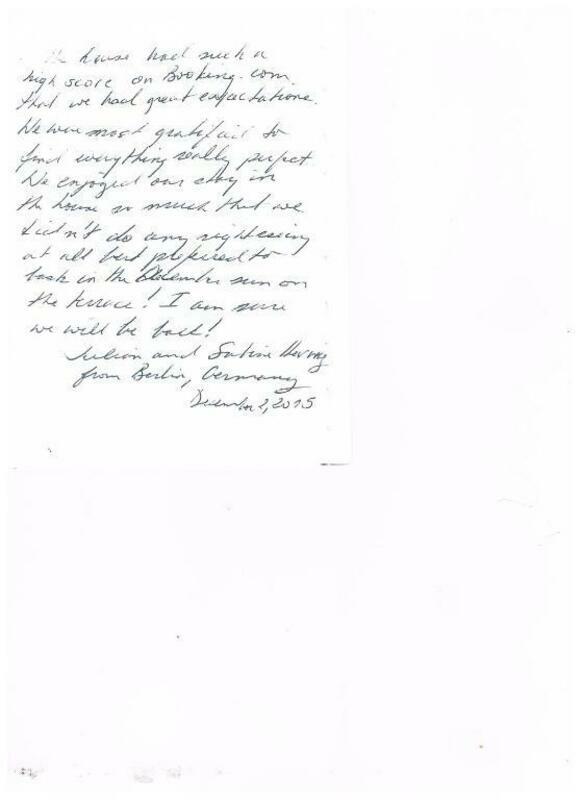 The house had such a
high score on Booking.com
that we had great expectations.
We were most gratified to
find everything really perfect
We enjoyed our stay in
the house so much that we
didn't do any sightseeing
at all but prefered to
bask in the December sun on
the terrace! I am sure
we will be back!
Julian and Sabine
from Berlin, Germany
December 2, 2015